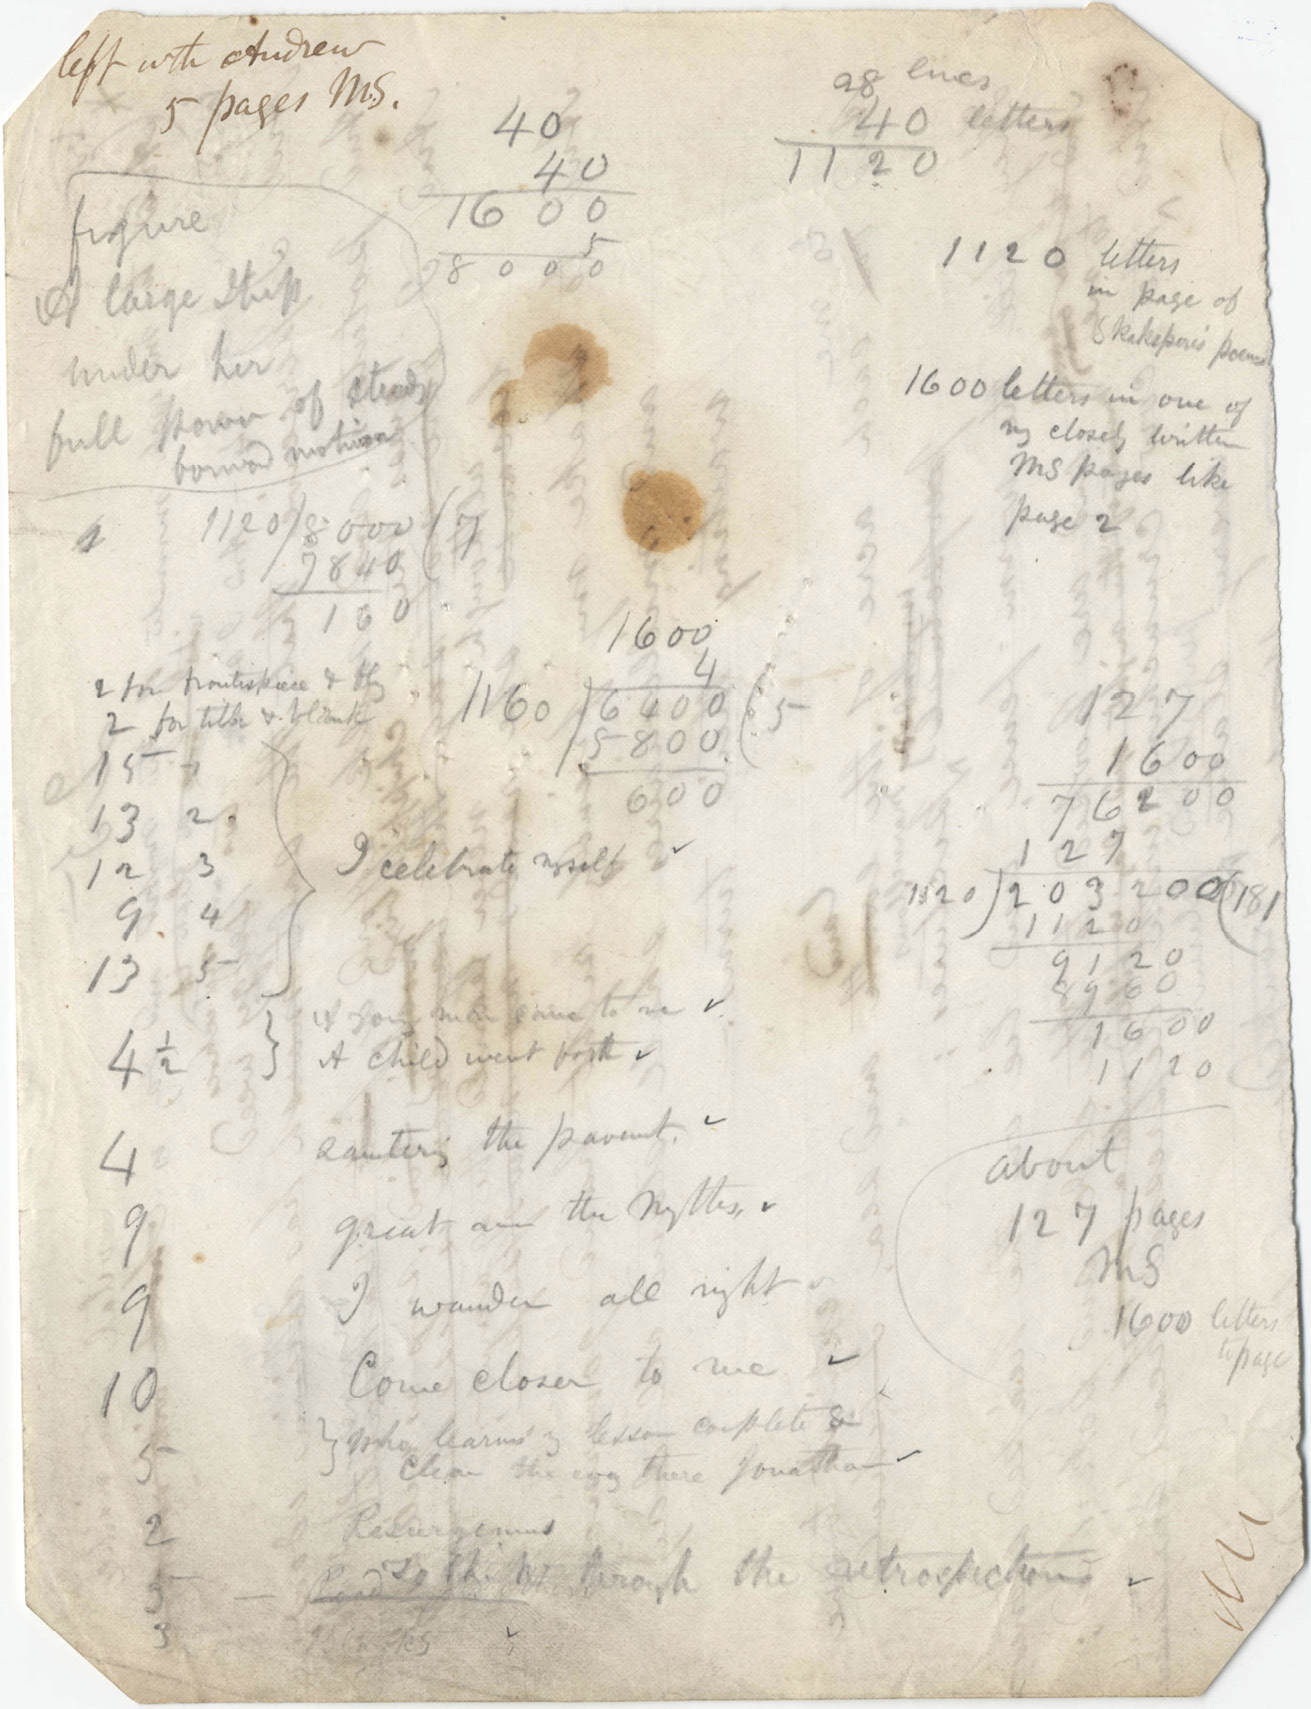 left with Andrew
5 pages MS.
40
40
1600
5
8000
28 lines
40 letters
1120
figure
A large ship
under her
full power of steady
forward motion
1120 letters
in page of
Shakspere's poems
1600 letters in one of
my closely written
MS pages like
page 2
1120 / 8000 ( 7
7840
160
1600
4
1160 / 6400 ( 5
5800
600
2 for frontispiece &
2 for title & blank
15 1
13 2
12 3
9 4
13 5
I celebrate myself
4 1/2
if you man come to me
A child went forth
4 sauntering the pavement.
9 great are the myths.
9 I wander all night
10 Come closer to me
5 Who learns my lesson complete &
Clear the way there Jonathan
2 Resurgemus
5 — To think through the retrospections
3 Blacks
127
1600
76200
127
1120 ) 203200 ( 181
1120
9120
8960
1600
1120
about
127 pages
MS
1600 letters
to page